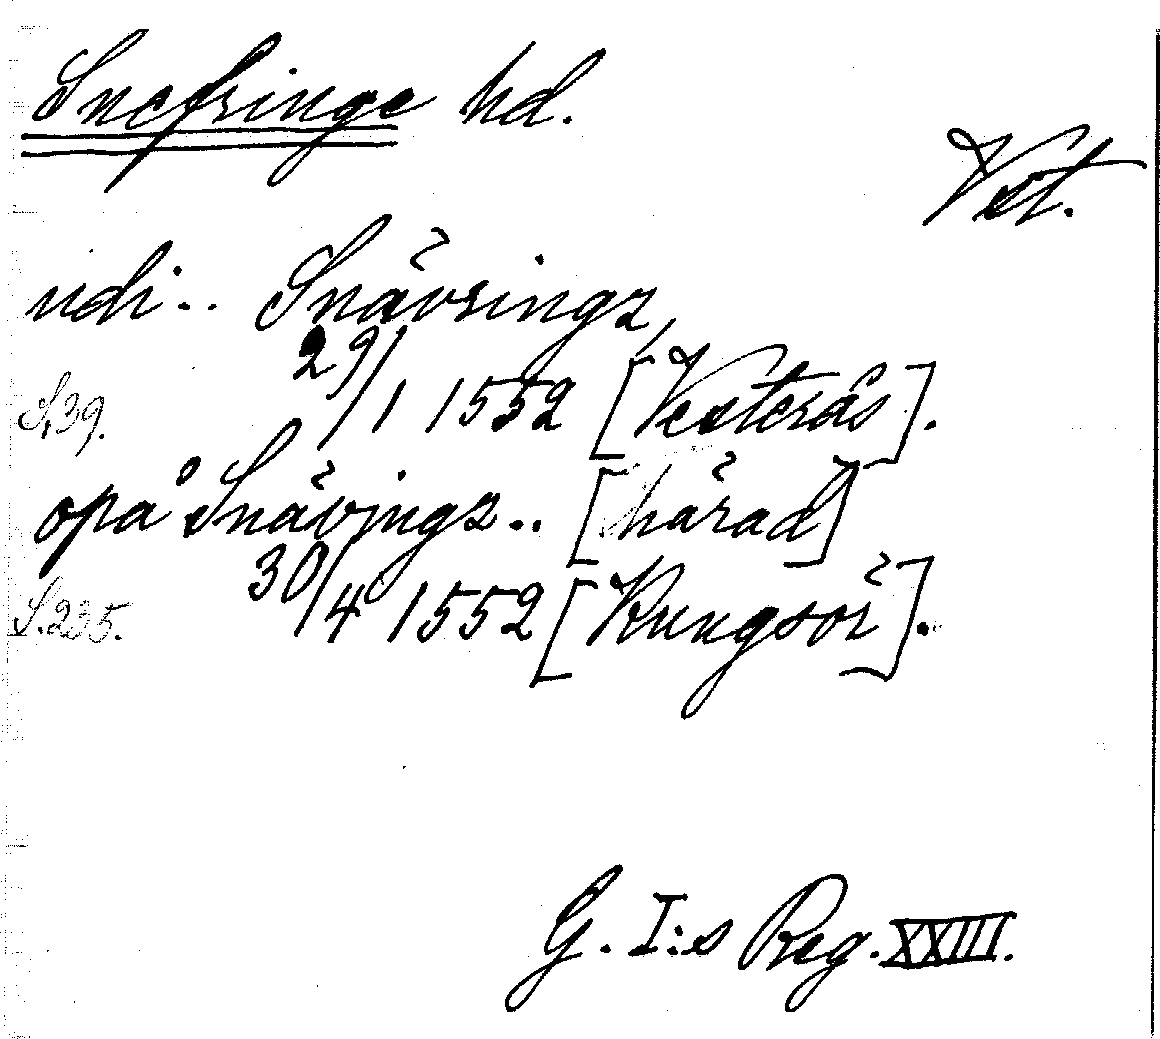 Snefringe hd.
Vst.
udi.. Snävringz,
29/1 1552 [Vesterås].
S.39.
opå Snävingz.. [härad]
30/4 1552 [Kungsör].
S.235.
G. I:s Reg. XXIII.